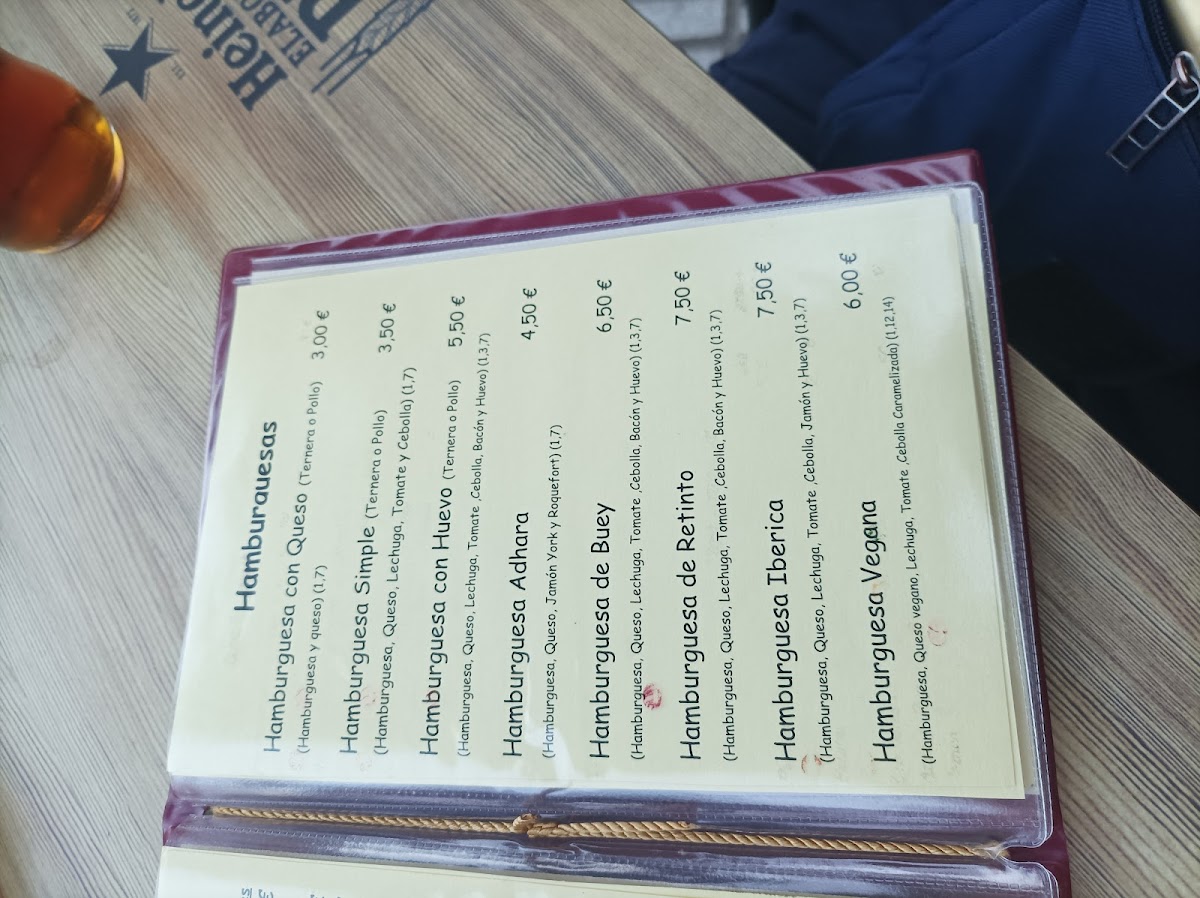 Hamburguesas
Hamburguesa con Queso (Ternera o Pollo) 3,00 €
(Hamburguesa y queso) (1,7)
Hamburguesa Simple (Ternera o Pollo) 3,50 €
(Hamburguesa, Queso, Lechuga, Tomate y Cebolla) (1,7)
Hamburguesa con Huevo (Ternera o Pollo) 5,50 €
(Hamburguesa, Queso, Lechuga, Tomate ,Cebolla, Bacón y Huevo) (1,3,7)
Hamburguesa Adhara 4,50 €
(Hamburguesa, Queso, Jamón York y Roquefort) (1,7)
Hamburguesa de Buey 6,50 €
(Hamburguesa, Queso, Lechuga, Tomate ,Cebolla, Bacón y Huevo) (1,3,7)
Hamburguesa de Retinto 7,50 €
(Hamburguesa, Queso, Lechuga, Tomate ,Cebolla, Bacón y Huevo) (1,3,7)
Hamburguesa Iberica 7,50 €
(Hamburguesa, Queso, Lechuga, Tomate ,Cebolla, Jamón y Huevo) (1,3,7)
Hamburguesa Vegana 6,00 €
(Hamburguesa, Queso vegano, Lechuga, Tomate ,Cebolla Caramelizada) (1,12,14)